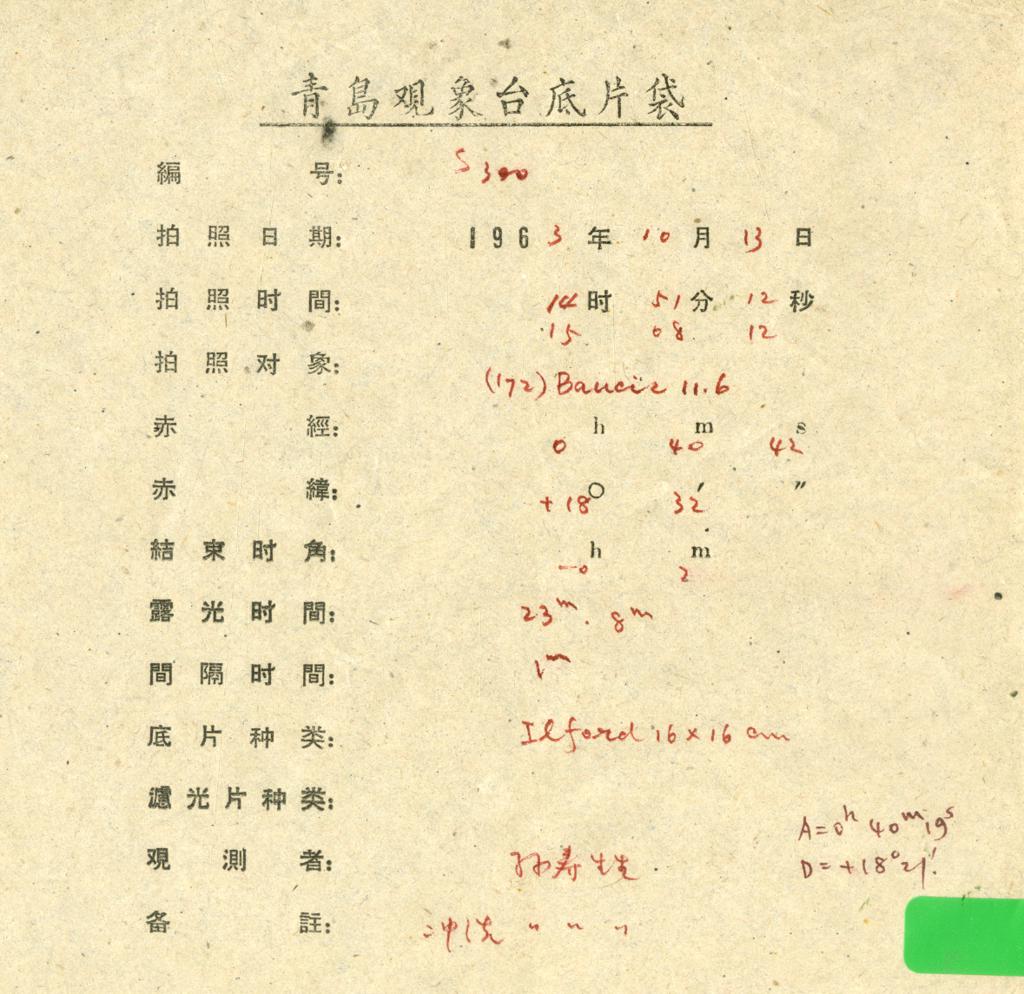 青島观象台底片袋
編 号: S300
拍照日期: 1963年10月13日
拍照时間: 14时51分12秒
15 08 12
拍照对象: (172) Baucis 11.6
赤 經: 0h 40m 42s
赤 緯: +18° 32′ ″
結束时角: -0h 2m
露光时間: 23m. 8m
間隔时間: 1m
底片种类: Ilford 16×16 cm
濾光片种类:
观測者: 孙寿
备 註: 冲洗 〃 〃 〃
A=0h 40m 19s
D=+18°21′